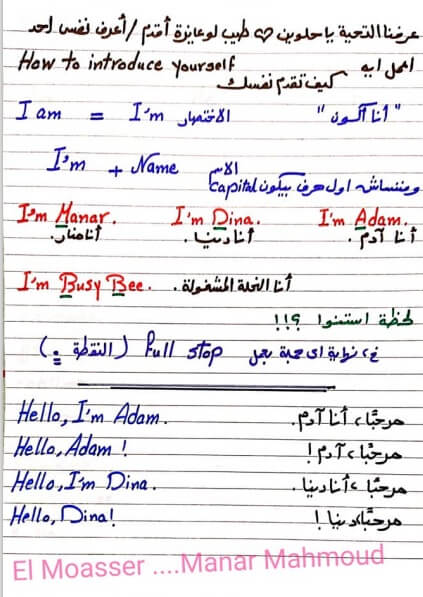 عرفنا التحية ياحلوين ♡ طيب لو عايزة أقدم / أعرف نفسي لحد
How to introduce yourself أعمل ايه
كيف تقدم نفسك
I am = I'm الاختصار "أنا أكون"
I'm + Name الاسم
ومننساش اول حرف بيكون Capital
I'm Manar. I'm Dina. I'm Adam.
أنا منار. أنا دنيا. أنا آدم.
I'm Busy Bee. أنا النحلة المشغولة.
لحظة استنوا ؟!!
في نهاية اى جملة بحط full stop (النقطة .)
Hello, I'm Adam. مرحبًا، أنا آدم.
Hello, Adam! مرحبًا، آدم!
Hello, I'm Dina. مرحبًا، أنا دنيا.
Hello, Dina! مرحبًا، دنيا!
El Moasser ....Manar Mahmoud